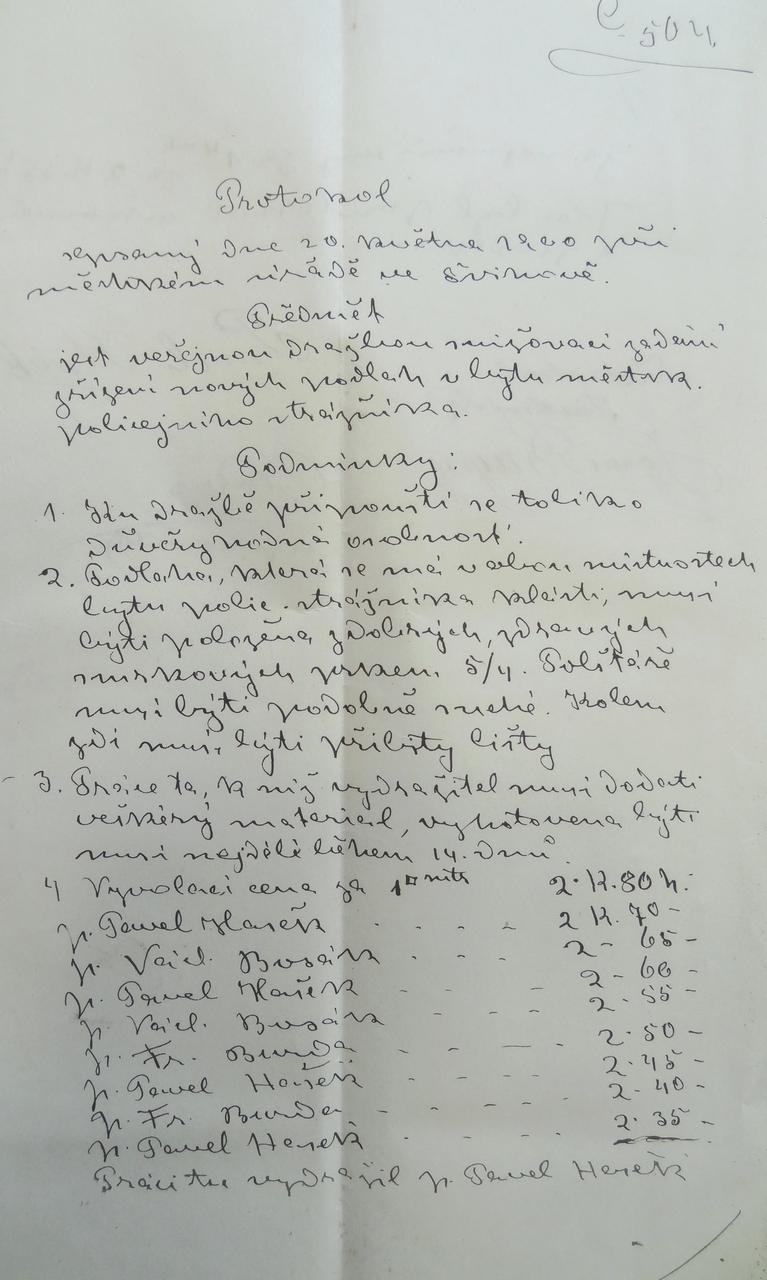 Č. 504.
Protokol
sepsaný dne 20. května 1900 při
městském úřadě ve Svinově.
Předmět
jest veřejnou dražbou snižovací zadání
zřízení nových podlah v bytu městsk.
policejního strážníka.
Podmínky:
1. Ku dražbě připouští se toliko
důvěryhodná osobnost.
2. Podlaha, která se má v obou místnostech
bytu polic. strážníka klásti, musí
býti položena z dobrých, zdravých
smrkových prken 5/4. Polštáře
musí býti podobně suché. Kolem
zdi musí býti přibity lišty
3. Práce ta, k níž vydražitel musí dodati
veškerý material, vyhotovena býti
musí nejdéle během 14. dnů.
4 Vyvolací cena za 1□ mtr 2·K.80h.
p. Pavel Hašek . - . - 2 K. 70 -
p. Vojt. Busák . - . - 2 - 65 -
p. Pavel Hašek - - - 2 - 60 -
p. Vojt. Busák - - - 2 · 55 -
p. Fr. Burda - - — - 2 · 50 -
p. Pavel Hašek - - - - 2 · 45 -
p. Fr. Burda - - - - 2 · 40 -
p. Pavel Hašek . - . - 2 · 35 -
Práci tu vydražil p. Pavel Hašek